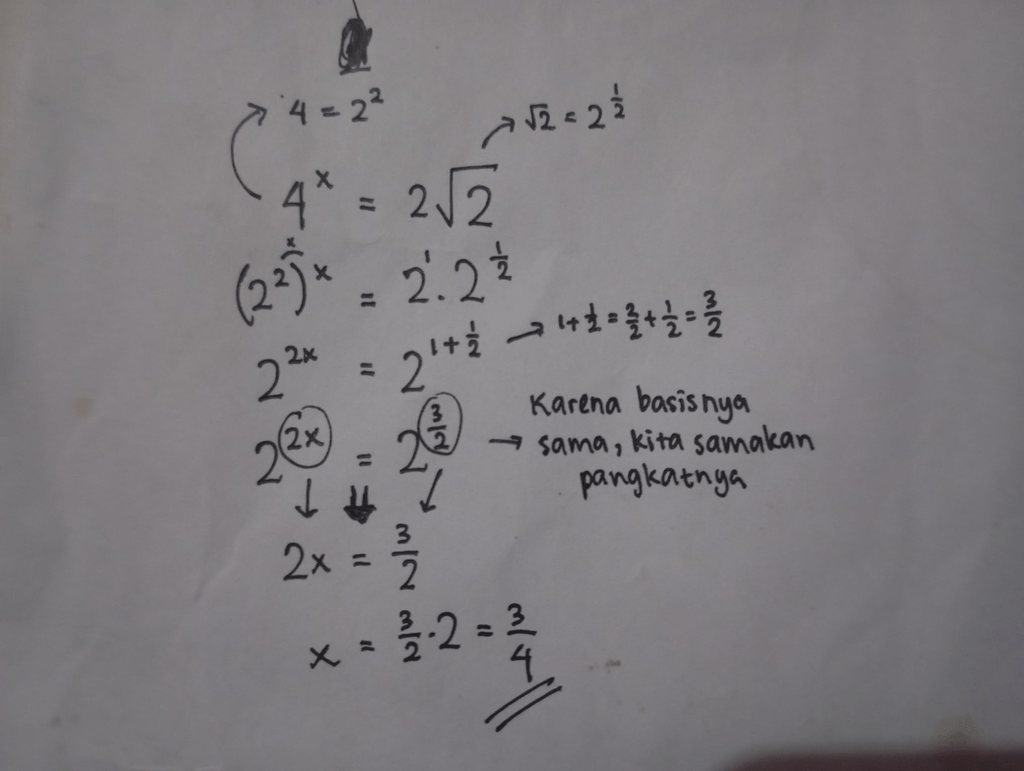 4 = 2²
√2 = 2^½
4^x = 2√2
(2²)^x = 2¹ . 2^½
2^2x = 2^1+½ → 1+½ = 2/2 + ½ = 3/2
2^2x = 2^3/2 → Karena basisnya
sama, kita samakan
pangkatnya
2x = 3/2
x = 3/2 . 2 = 3/4